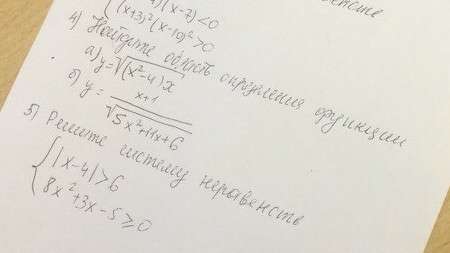 )(x-7)<0
(x+3)²(x-10)²>0
4) Найдите область определения функции
а) y=√(x²-4)x
б) y= x+1 / √5x²+11x+6
5) Решите систему неравенств
{ |x-4|>6
8x²+3x-5≥0